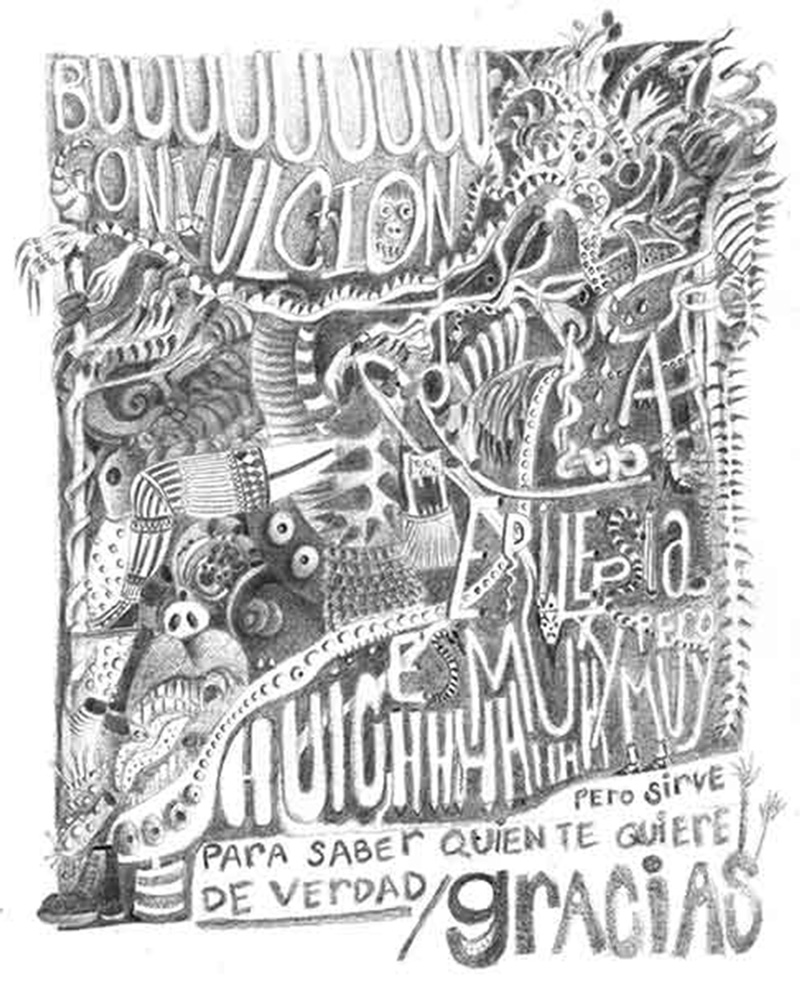 BUUUUUUUUU
CONVULCION
LA
EPILEPsIa
PErO
ES MUY MUY
PEro sirvE
PARA SABEr QUIEN TE QUIERE
DE VErDAD/grACiAS